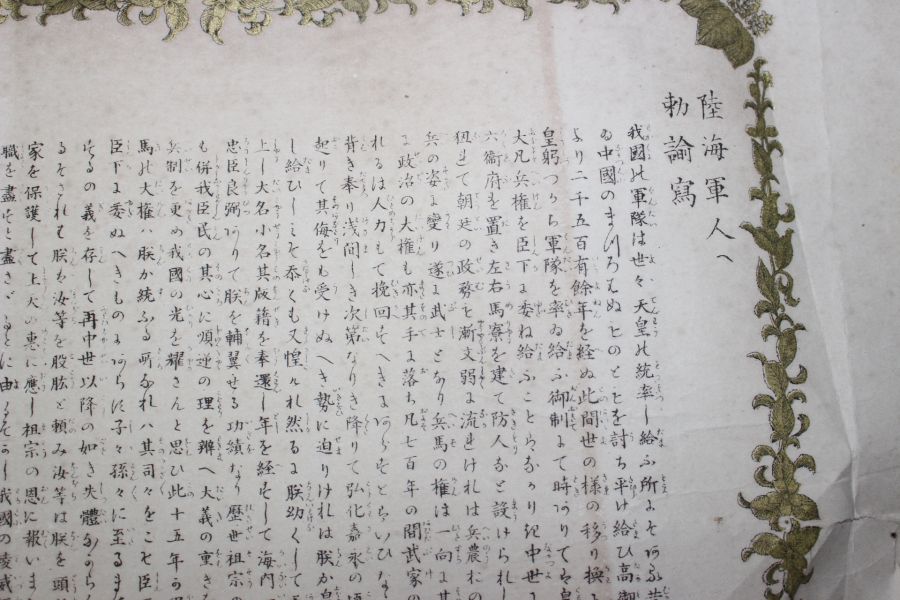 陸海軍人へ
勅諭寫
我國の軍隊は世々天皇の統率し給ふ所にそある昔
ゐ中國のまつろはぬものともを討ち平け給ひ高御
より二千五百有餘年を経ぬ此間世の様の移り換
皇躬つから軍隊を率ゐ給ふ御制にて時ありては皇
大凡兵権を臣下に委ね給ふことはなかりき中世に
六衛府を置き左右馬寮を建て防人なと設けられし
狃れて朝廷の政務も漸文弱に流れけれは兵農おの
兵の姿に變り遂に武士となり兵馬の権は一向に其
に政治の大権も亦其手に落ち凡七百年の間武家の
れるは人力もて挽回すへきにあらすとはいひな
背き奉り浅間しき次第なりき降りて弘化嘉永の頃
起りて其侮をも受けぬへき勢に迫りけれは朕か皇
し給ひしこそ忝くも又惶けれ然るに朕幼くして
上し大名小名其版籍を奉還し年を経すして海内
忠臣良弼ありて朕を輔翼せる功績なり歴世祖宗の
も併我臣民の其心に順逆の理を辨へ大義の重き
兵制を更め我國の光を耀さんと思ひ此十五年か
馬の大権は朕か統ふる所なれは其司々をこそ臣
臣下に委ぬへきものにあらす子々孫々に至るま
するの義を存して再中世以降の如き失體なから
るそされは朕は汝等を股肱と頼み汝等は朕を頭
家を保護して上天の恵に應し祖宗の恩に報いま
職を盡すと盡さゝるとに由るそかし我國の稜威